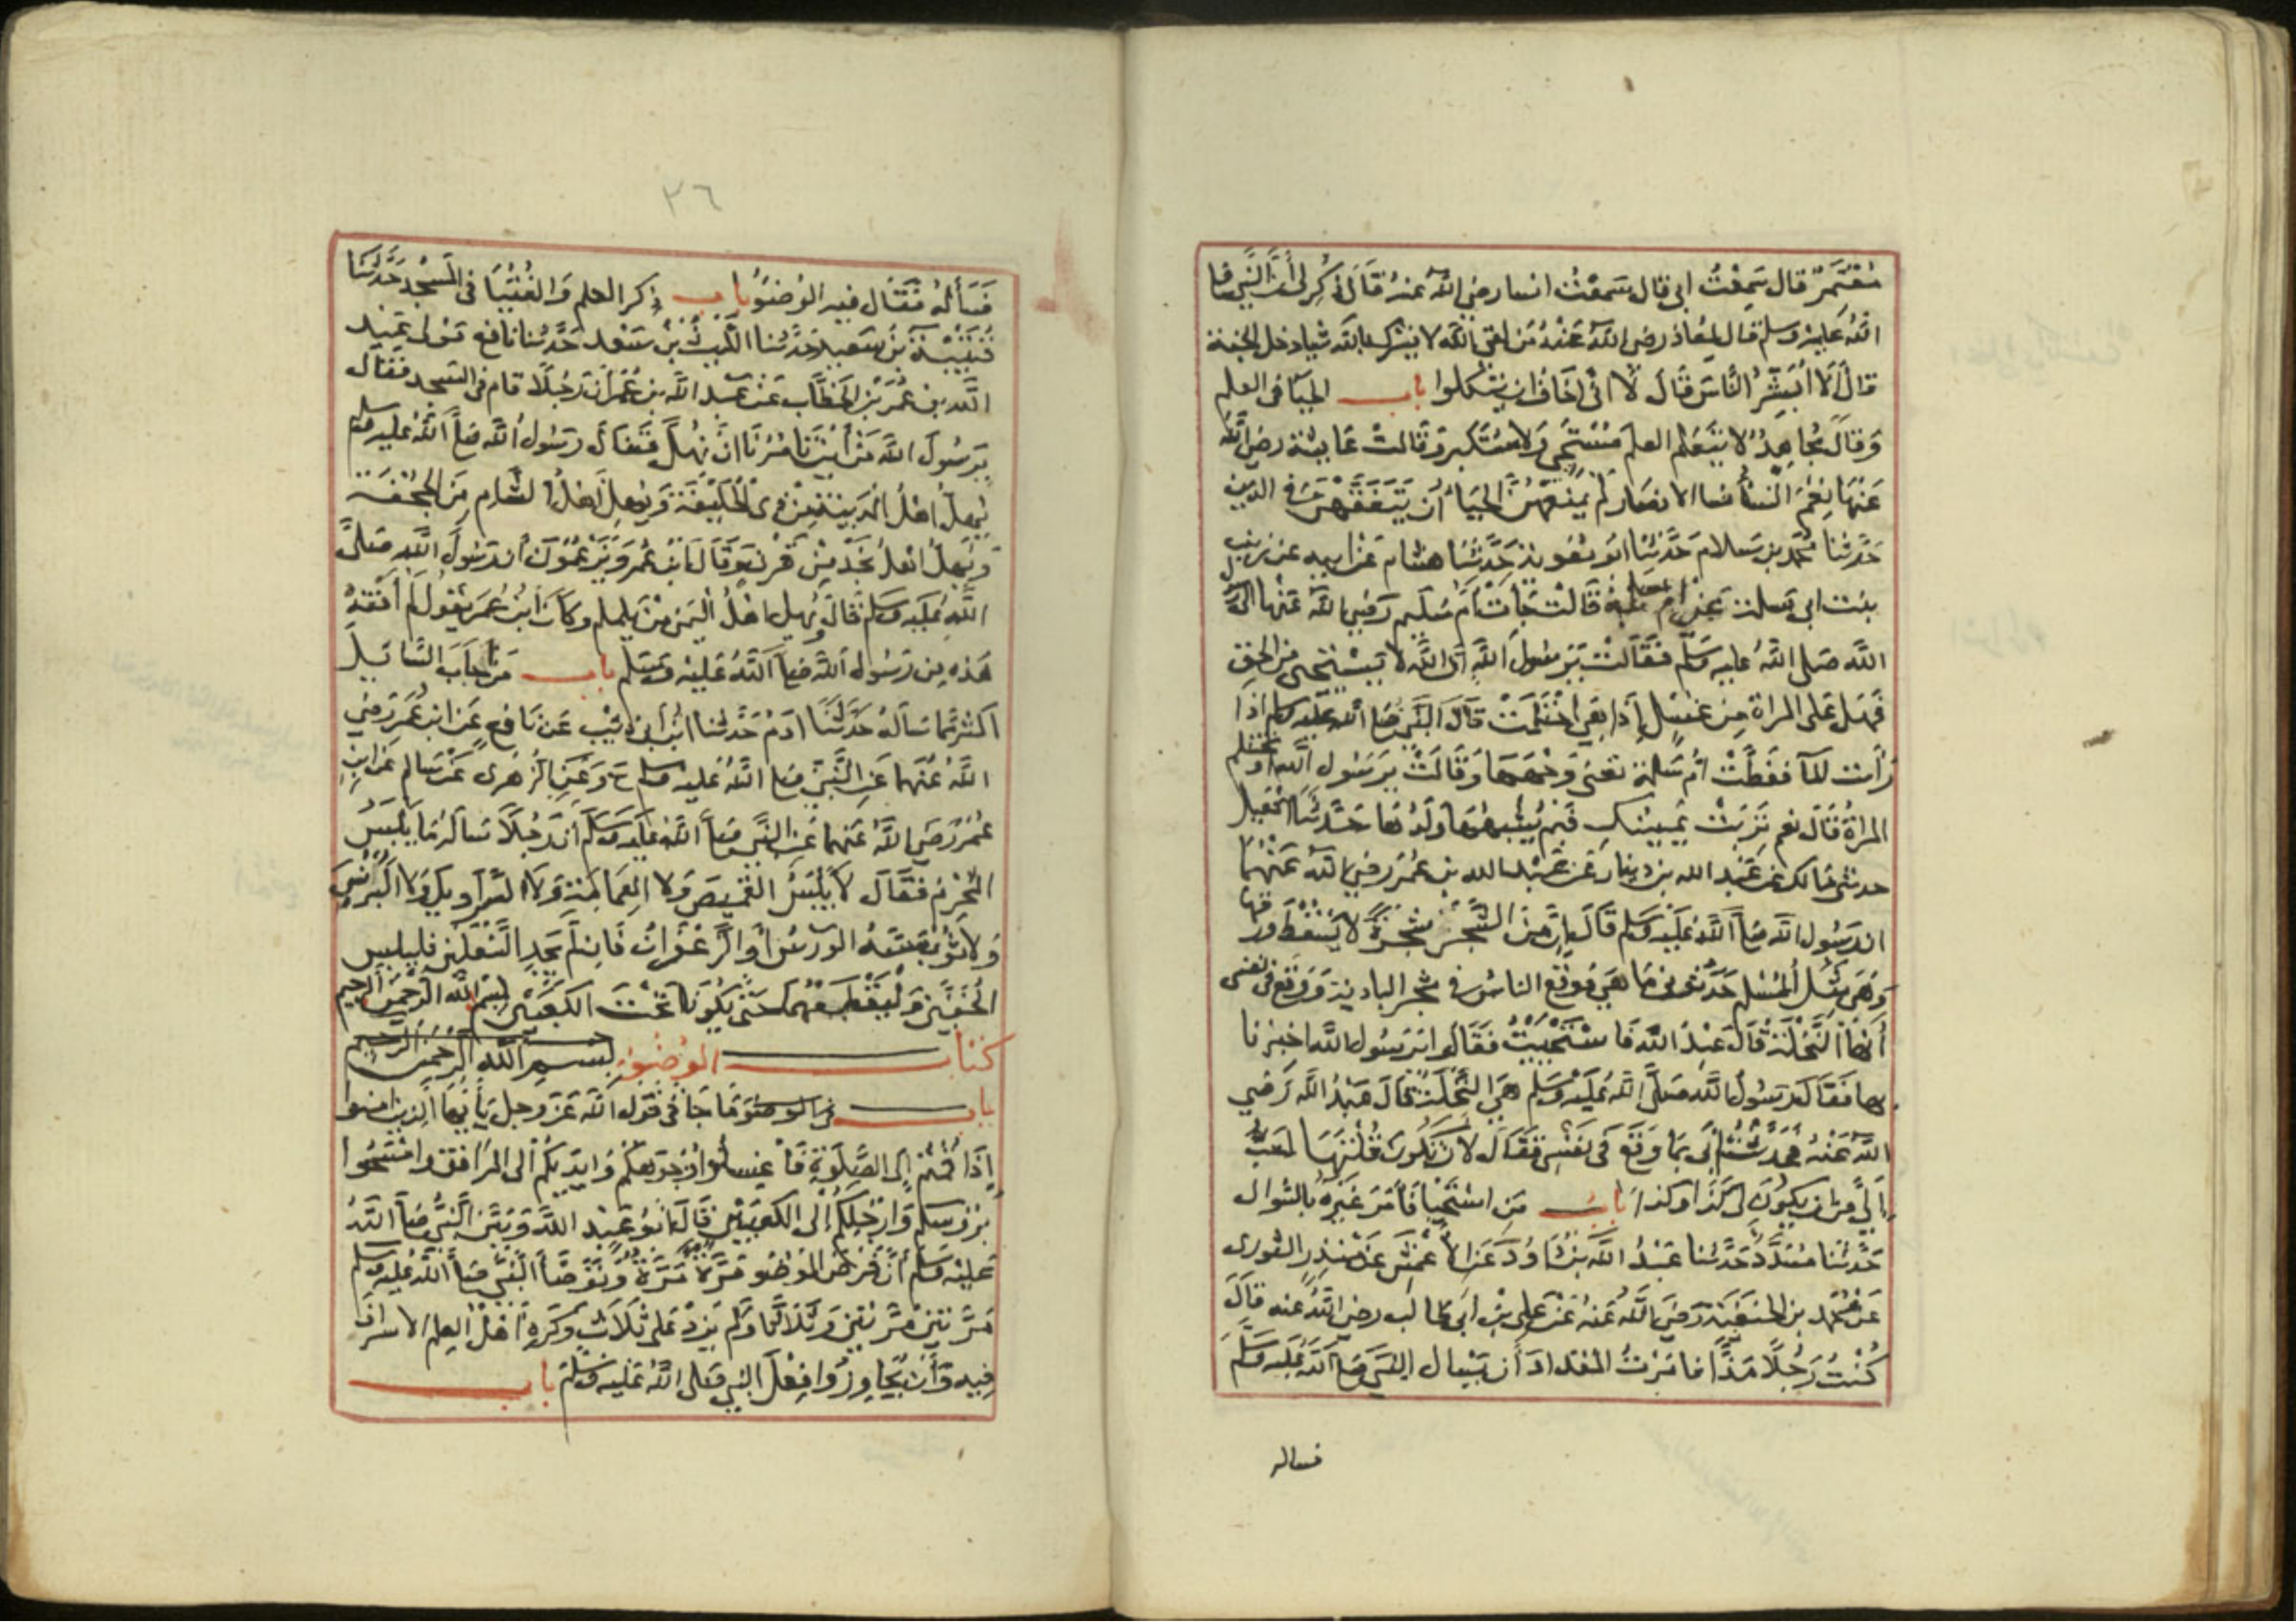 معتمر قال سمعت ابى قال سمعت انسا رضي الله عنه قال ذكر لى أن النبى صلى
الله عليه وسلم قال لمعاذ رضى الله عنه من لقى الله لا يشرك بالله شيا دخل الجنة
قال ألا أبشر الناس قال لا انى اخاف ان يتكلوا باب الحيا فى العلم
وقال مجاهد لا يتعلم العلم مستحى ولا مستكبر وقالت عايشة رضى الله
عنها نعم النسأ نسا الانصار لم يمنعهن الحيا أن يتفقهن فى الدين
حدثنا محمد بن سلام حدثنا ابو معوية حدثنا هشام عن ابيه عن زينب
بنت ابى سلمة عن ام سلمة قالت جأت أم سليم رضي الله عنها الى رسول
الله صلى الله عليه وسلم فقالت يرسول الله ان الله لا يستحى من الحق
فهل على المراة من غسل إذا هى احتلمت قال النبى صلى الله عليه وسلم اذا
رأت المآ فغطت ام سلمة تعنى وجهها وقالت يرسول الله أو تحتلم
المراة قال نعم تربت يمينك فبم يشبهها ولدها حدثنا اسمعيل
حدثنى مالك عن عبد الله بن دينار عن عبد الله بن عمر رضي الله عنهما
ان رسول الله صلى الله عليه وسلم قال إن من الشجر شجرة لا يسقط ورقها
وهى مثل المسلم حدثونى ما هى فوقع الناس فى شجر البادية ووقع فى نفسى
أنها النخلة قال عبد الله فاستحييت فقالوا يرسول الله اخبرنا
بها فقال رسول الله صلى الله عليه وسلم هى النخلة قال عبد الله رضي
الله عنه فحدثت أبى بما وقع فى نفسى فقال لان تكون قلتها أحب
إلى من ان يكون لى كذا وكذا باب من استحيا فأمر غيره بالسوال
حدثنا مسدد حدثنا عبد الله بن داود عن الأعمش عن منذر الثورى
عن محمد بن الحنفية رضي الله عنه عن على بن ابى طالب رضى الله عنه قال
كنت رجلا مذأ فامرت المقداد أن يسال النبى صلى الله عليه وسلم
فساله
٣٦
فسأله فقال فيه الوضوء باب ذكر العلم والفتيا فى المسجد حدثنا
قتيبة بن سعيد حدثنا الليث بن سعد حدثنا نافع مولى عبد
الله بن عمر بن الخطاب عن عبد الله بن عمر ان رجلا قام فى المسجد فقال
يرسول الله من أين تامرنا ان نهل فقال رسول الله صلى الله عليه وسلم
يهل اهل المدينة من ذى الحليفة ويهل اهل الشام من الجحفة
ويهل اهل نجد من قرن وقال ابن عمر ويزعمون أن رسول الله صلى
الله عليه وسلم قال ويهل اهل اليمن من يلملم وكان ابن عمر يقول لم أفقه
هذه من رسول الله صلى الله عليه وسلم باب من اجاب السائل
اكثر مما سأله حدثنا ادم حدثنا ابن أبى ذيب عن نافع عن ابن عمر رضي
الله عنهما عن النبى صلى الله عليه وسلم ح وعن الزهرى عن سالم عن ابن
عمر رضي الله عنهما عن النبى صلى الله عليه وسلم أن رجلا سأله ما يلبس
المحرم فقال لا يلبس القميص ولا العمامة ولا السراويل ولا البرنس
ولا ثوبا مسه الورس أو الزعفران فان لم يجد النعلين فليلبس
الخفين وليقطعهما حتى يكونا تحت الكعبين بسم الله الرحمن الرحيم
كتاب الوضوء بسم الله الرحمن الرحيم
باب فى الوضوء وما جا فى قول الله عز وجل يأيها الذين امنوا
إذا قمتم إلى الصلوة فأغسلوا وجوهكم وايديكم الى المرافق وامسحوا
برؤسكم وارجلكم إلى الكعبين قال ابو عبد الله وبين النبى صلى الله
عليه وسلم أن فرض الوضو مرة مرة وتوضأ النبى صلى الله عليه وسلم
مرتين مرتين وثلاثا ولم يزد على ثلاث وكره أهل العلم الاسراف
فيه وأن يجاوزوا فعل النبي صلى الله عليه وسلم باب